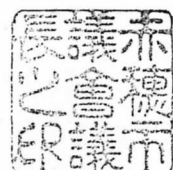 赤穂市
議會議
長之印